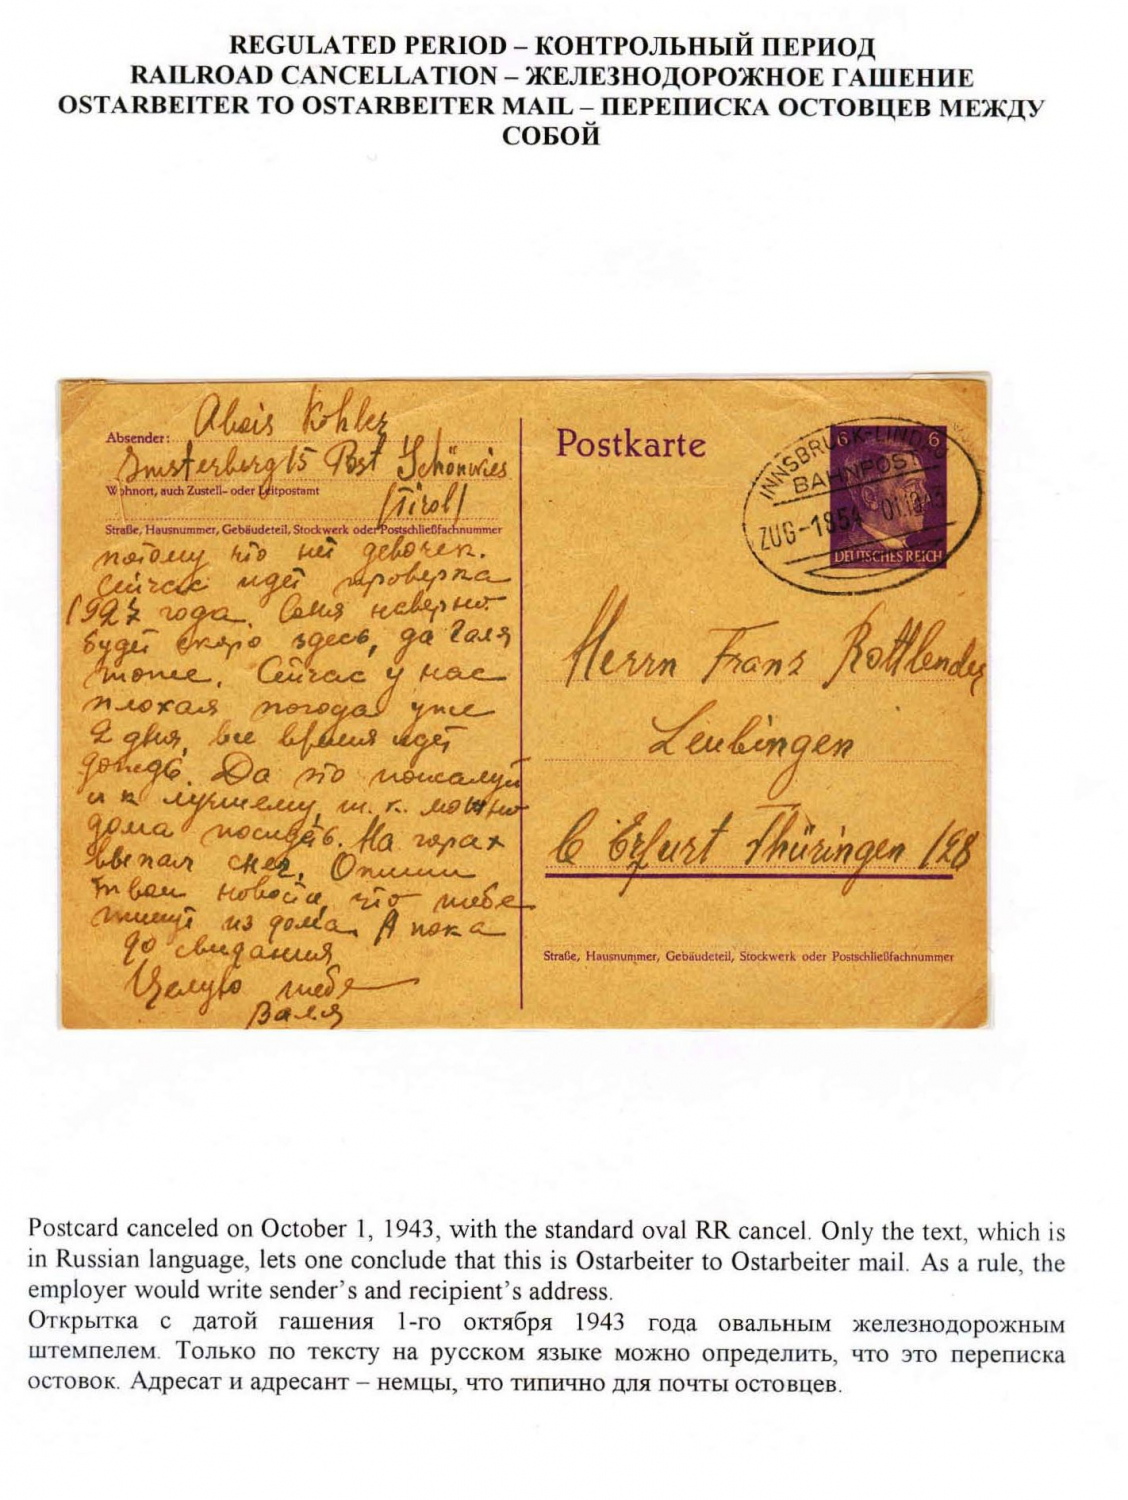 REGULATED PERIOD – КОНТРОЛЬНЫЙ ПЕРИОД
RAILROAD CANCELLATION – ЖЕЛЕЗНОДОРОЖНОЕ ГАШЕНИЕ
OSTARBEITER TO OSTARBEITER MAIL – ПЕРЕПИСКА ОСТОВЦЕВ МЕЖДУ
СОБОЙ
Absender: Alois Kohler
Imsterberg 15 Post Schönwies
Wohnort, auch Zustell- oder Leitpostamt
(Tirol)
Straße, Hausnummer, Gebäudeteil, Stockwerk oder Postschließfachnummer
потому что нет девочек.
Сейчас идет проверка
1927 года. Соня наверно
будет скоро здесь, да Галя
тоже. Сейчас у нас
плохая погода уже
2 дня, все время идет
дождь. Да это пожалуй
и к лучшему, т. к. можно
дома посидеть. На горах
выпал снег. Опиши
твои новости, что тебе
пишут из дома. А пока
до свидания
Целую тебя
Валя
Postkarte
INNSBRUCK-LINDAU
BAHNPOST
ZUG-1854 01.10.43
6 6
DEUTSCHES REICH
Herrn Franz Rottlender
Leubingen
b Erfurt Thüringen /128
Straße, Hausnummer, Gebäudeteil, Stockwerk oder Postschließfachnummer
Postcard canceled on October 1, 1943, with the standard oval RR cancel. Only the text, which is
in Russian language, lets one conclude that this is Ostarbeiter to Ostarbeiter mail. As a rule, the
employer would write sender's and recipient's address.
Открытка с датой гашения 1-го октября 1943 года овальным железнодорожным
штемпелем. Только по тексту на русском языке можно определить, что это переписка
остовок. Адресат и адресант – немцы, что типично для почты остовцев.